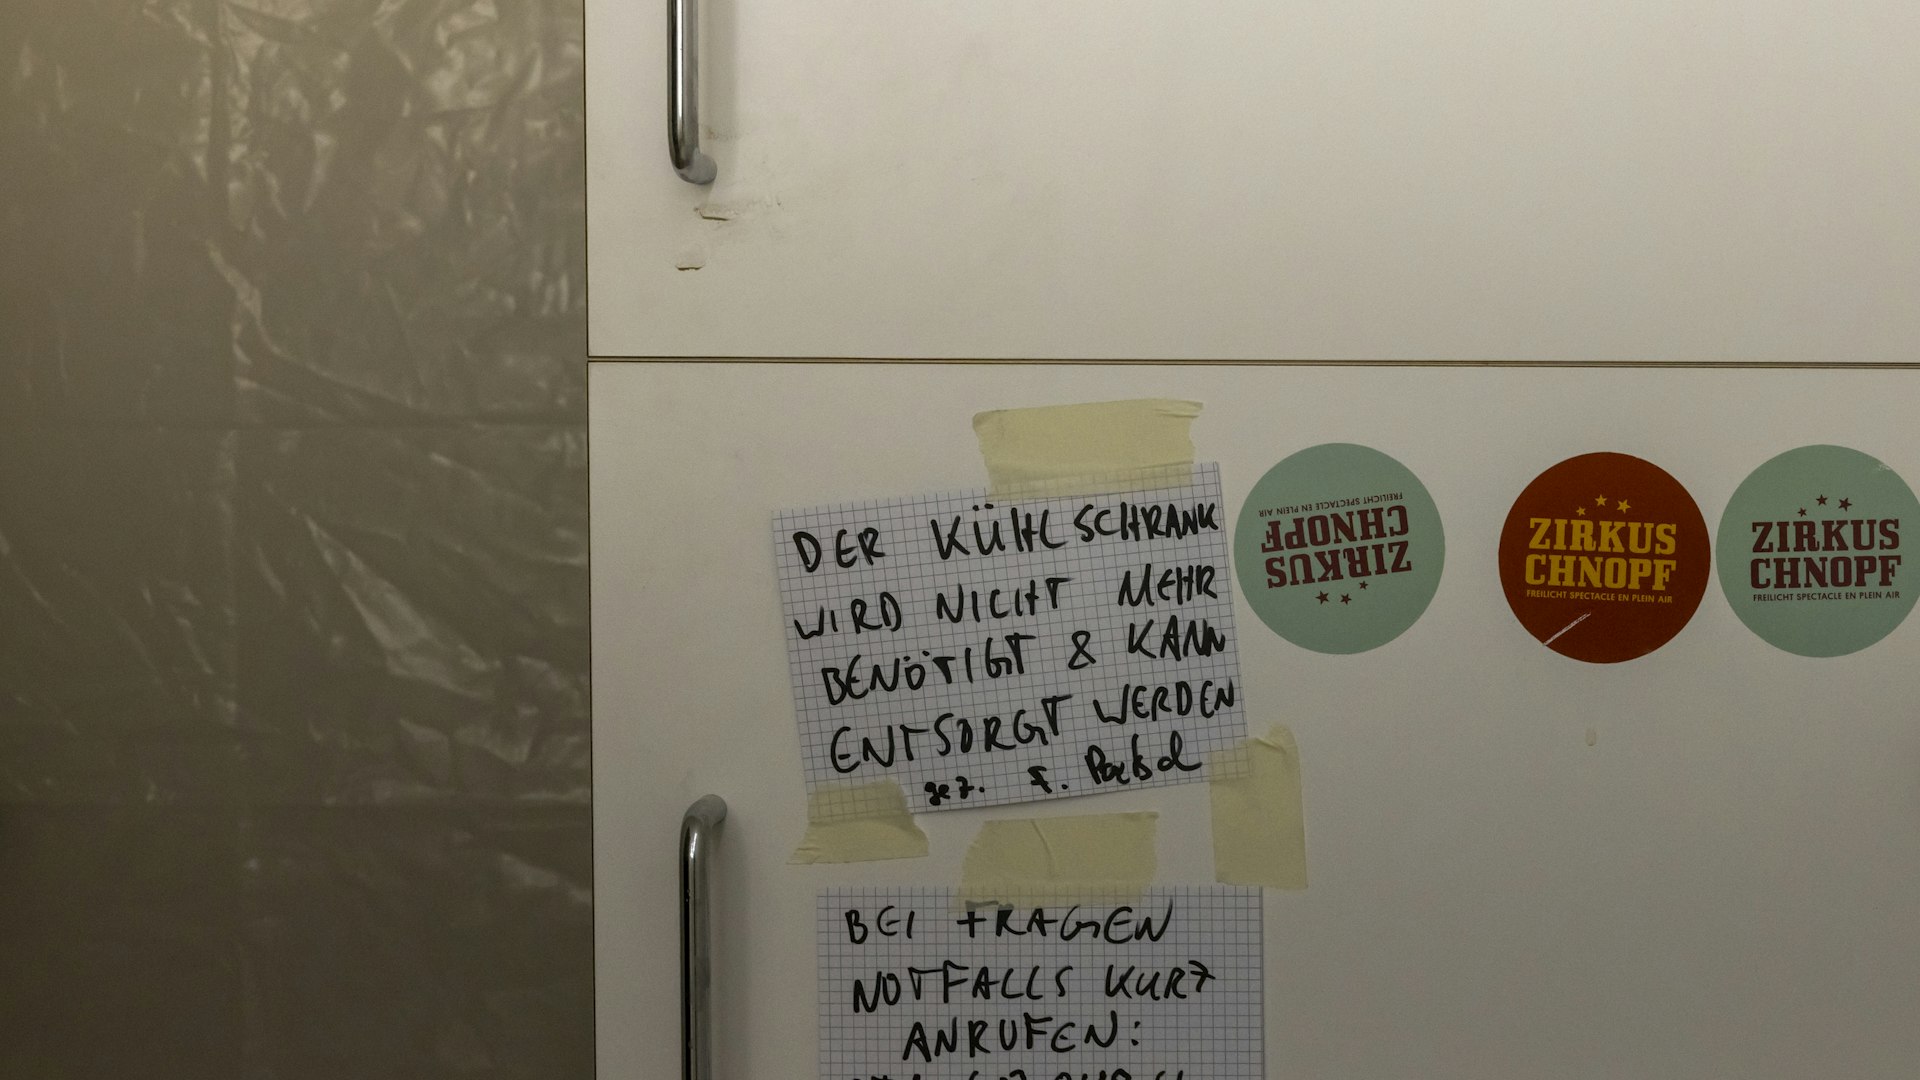 DER KÜHLSCHRANK
WIRD NICHT MEHR
BENÖTIGT & KANN
ENTSORGT WERDEN
gez. F.
BEI FRAGEN
NOTFALLS KURZ
ANRUFEN:
ZIRKUS
CHNOPF
FREILICHT SPECTACLE EN PLEIN AIR
ZIRKUS
CHNOPF
FREILICHT SPECTACLE EN PLEIN AIR
ZIRKUS
CHNOPF
FREILICHT SPECTACLE EN PLEIN AIR